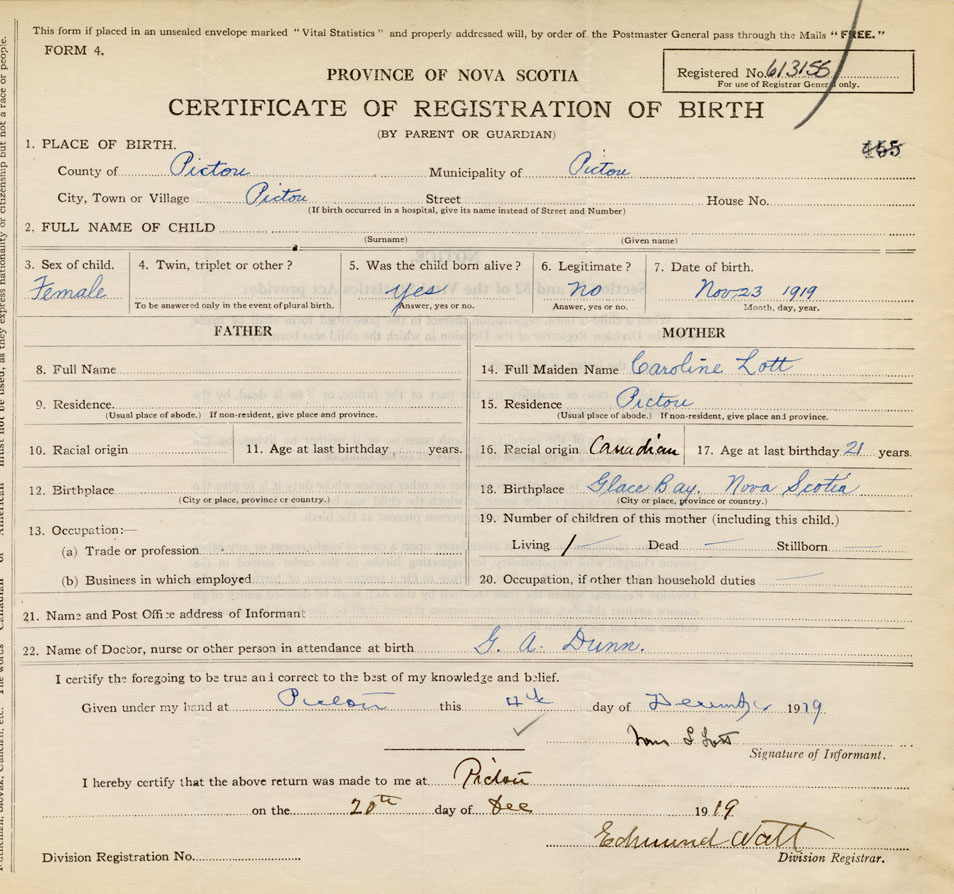 This form if placed in an unsealed envelope marked "Vital Statistics" and properly addressed will, by order of the Postmaster General pass through the Mails "FREE."
FORM 4.
Registered No. 613156
For use of Registrar General only.
PROVINCE OF NOVA SCOTIA
CERTIFICATE OF REGISTRATION OF BIRTH
(BY PARENT OR GUARDIAN)
1. PLACE OF BIRTH.
County of Pictou Municipality of Pictou
City, Town or Village Pictou Street House No.
(If birth occurred in a hospital, give its name instead of Street and Number)
2. FULL NAME OF CHILD
(Surname) (Given name)
3. Sex of child. 4. Twin, triplet or other? 5. Was the child born alive? 6. Legitimate? 7. Date of birth.
Female yes no Nov 23 1919
To be answered only in the event of plural birth. Answer, yes or no. Answer, yes or no. Month, day, year.
FATHER
8. Full Name
9. Residence.
(Usual place of abode.) If non-resident, give place and province.
10. Racial origin 11. Age at last birthday years.
12. Birthplace
(City or place, province or country.)
13. Occupation:—
(a) Trade or profession
(b) Business in which employed
MOTHER
14. Full Maiden Name Caroline Lott
15. Residence Pictou
(Usual place of abode.) If non-resident, give place and province.
16. Racial origin Canadian 17. Age at last birthday 21 years.
18. Birthplace Glace Bay. Nova Scotia
(City or place, province or country.)
19. Number of children of this mother (including this child.)
Living 1 — Dead — Stillborn —
20. Occupation, if other than household duties —
21. Name and Post Office address of Informant
22. Name of Doctor, nurse or other person in attendance at birth G. A. Dunn.
I certify the foregoing to be true and correct to the best of my knowledge and belief.
Given under my hand at Pictou this 4th day of December 1919
Lott
Signature of Informant.
I hereby certify that the above return was made to me at Pictou
on the 20th day of Dec 1919
Edmund Watt
Division Registration No. Division Registrar.